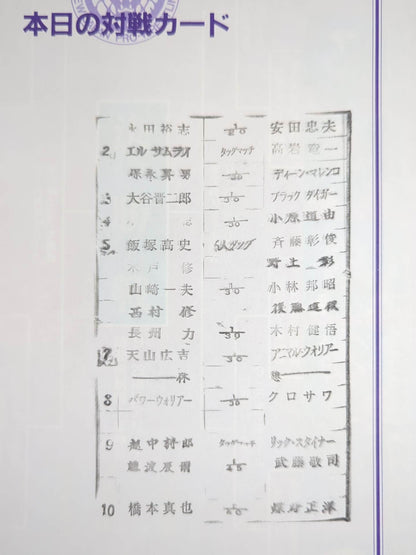 本日の対戦カード
永田裕志 1/20 安田忠夫
2 エル サムライ タッグマッチ 高岩竜一
保永昇男 /30 ディーン・マレンコ
3 大谷晋二郎 1/30 ブラック タイガー
4 /30 小原道由
5 飯塚高史 6人タッグ 斉藤彰俊
木戸 修 野上 彰
山崎一夫 1/30 小林邦昭
西村 修 後藤達俊
長州 力 1/30 木村健悟
7 天山広吉 1/30 アニマル・ウォリアー
休 憩
8 パワーウォリアー 1/30 クロサワ
9 越中詩郎 タッグマッチ リック・スタイナー
藤波辰爾 1/45 武藤敬司
10 橋本真也 1/60 蝶野正洋